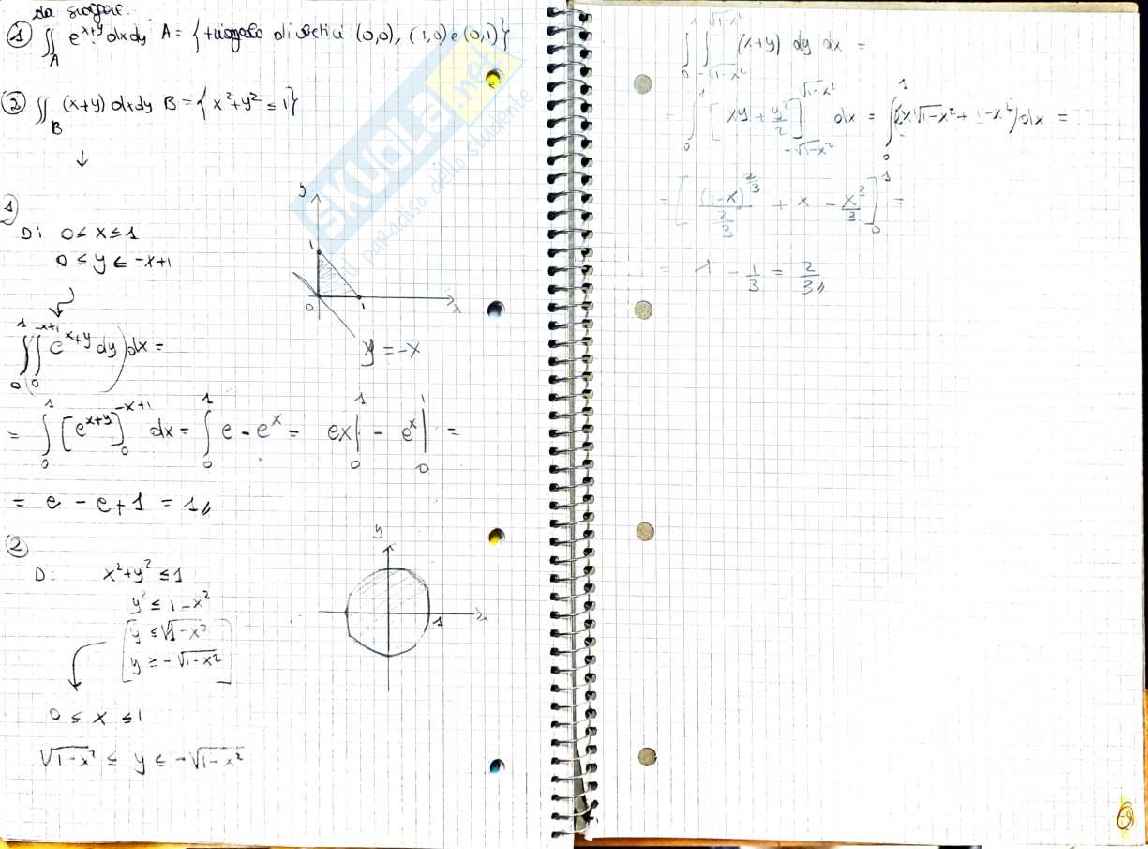 da svolgere.
① ∬_A e^{x+y} dxdy A = {triangolo di vertici (0,0), (1,0) e (0,1)}
② ∬_B (x+y) dxdy B = {x²+y² ≤ 1}
↓
1)
D: 0 ≤ x ≤ 1
0 ≤ y ≤ -x+1
y
1
0
1
x
y = -x
∫_0^1 (∫_0^{-x+1} e^{x+y} dy) dx =
= ∫_0^1 [e^{x+y}]_0^{-x+1} dx = ∫_0^1 e - e^x = ex|_0^1 - e^x|_0^1 =
= e - e + 1 = 1//
②
D: x²+y² ≤ 1
y² ≤ 1-x²
[y ≤ √1-x²
y ≥ -√1-x²]
0 ≤ x ≤ 1
√1-x² ≤ y ≤ -√1-x²
y
1
x
∫_0^1 ∫_{-√1-x²}^{√1-x²} (x+y) dy dx =
= ∫_0^1 [xy + y²/2]_{-√1-x²}^{√1-x²} dx =
= 1 - 1/3 = 2/3//
SKUOLA.net
il paradiso dello studente